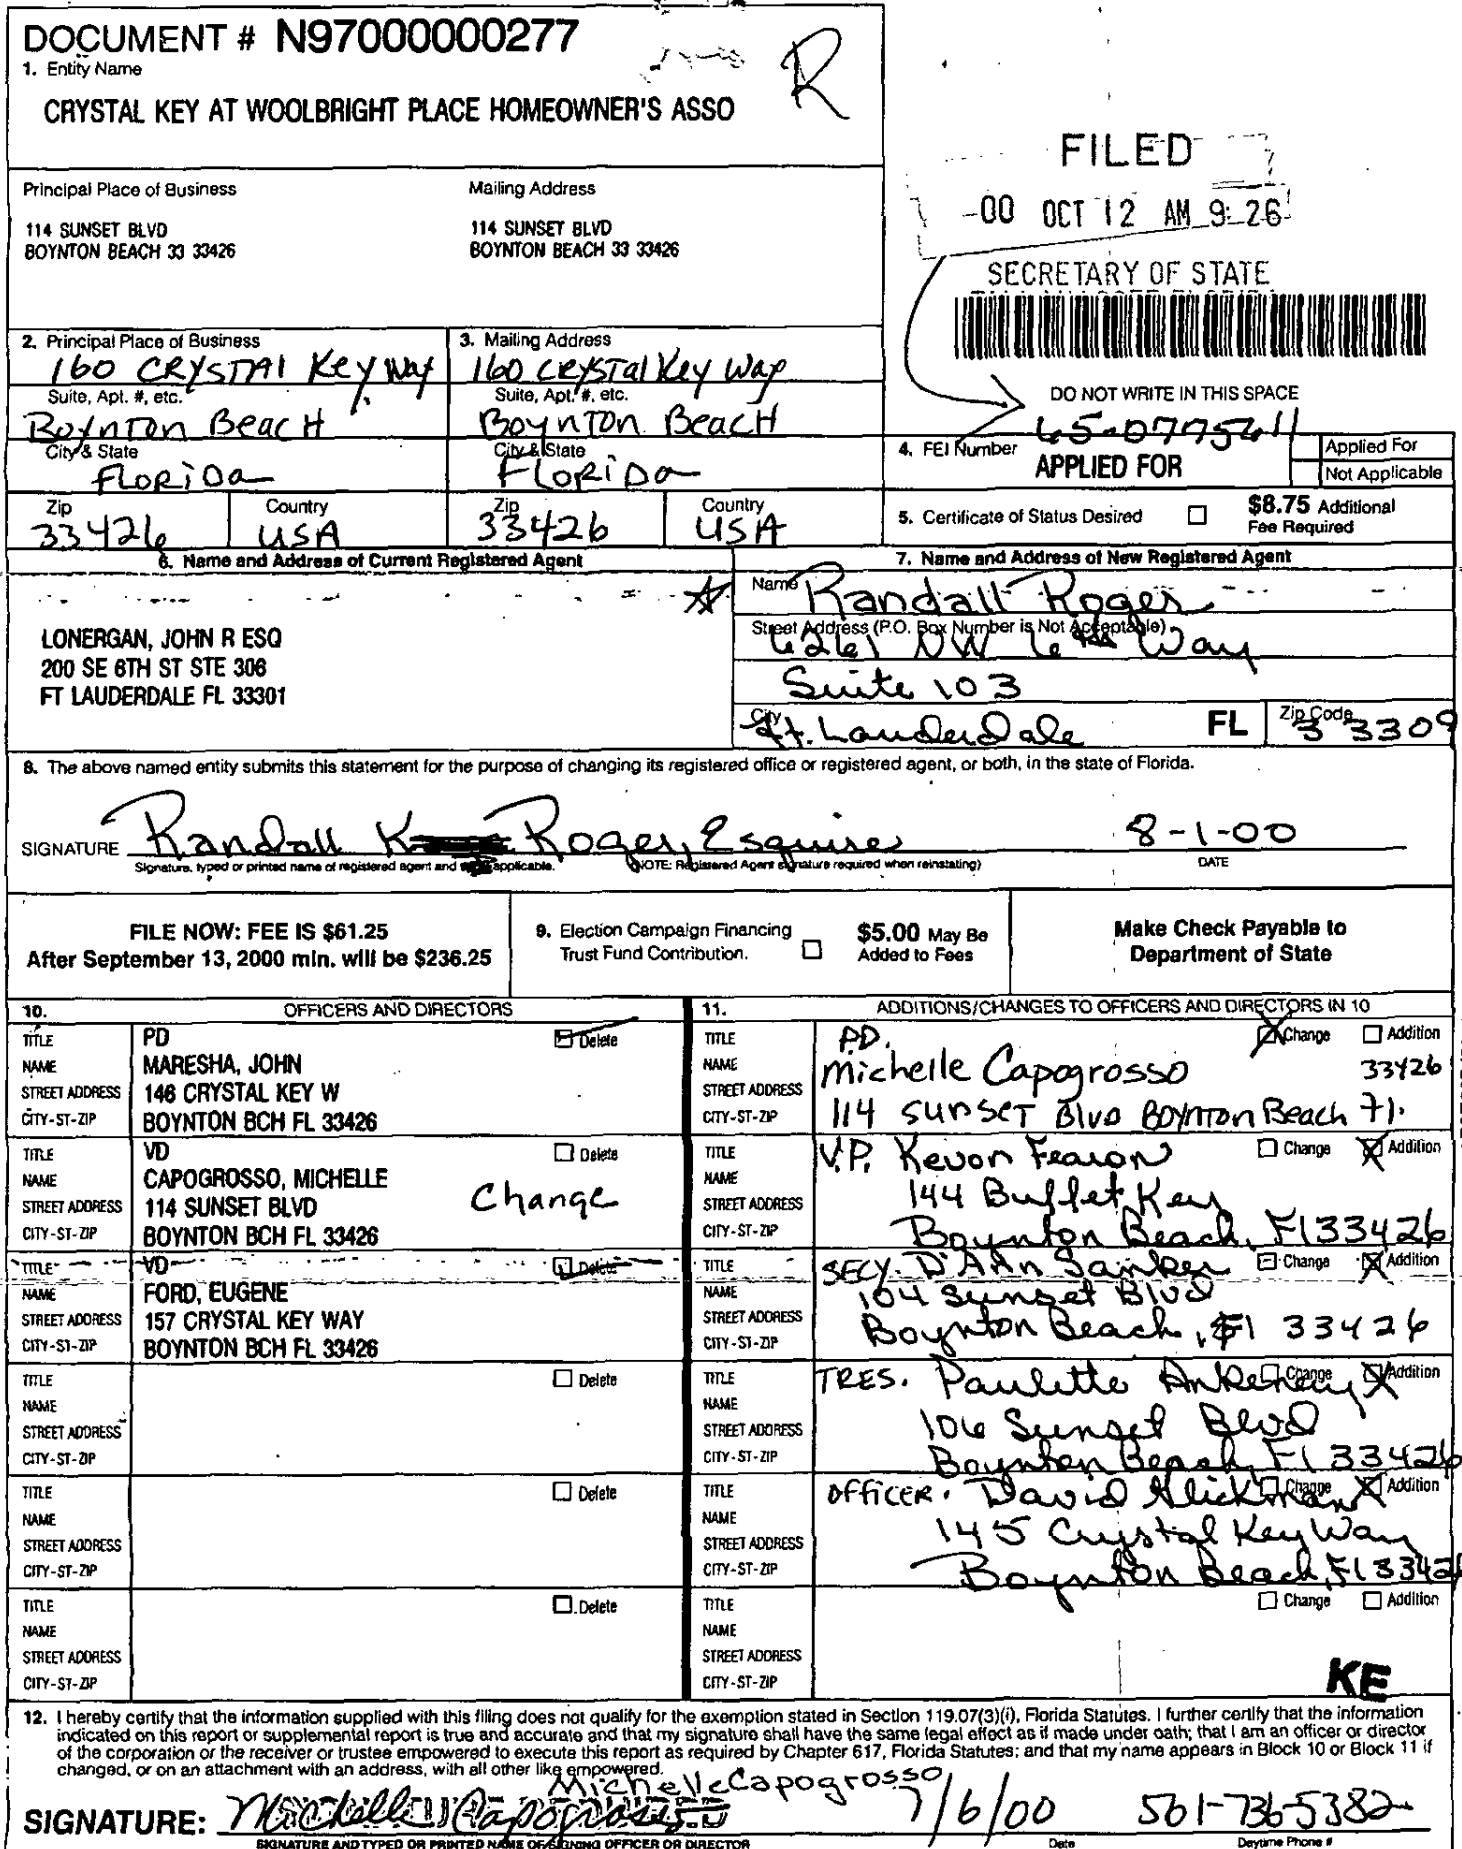 DOCUMENT # N97000000277
1. Entity Name
R
CRYSTAL KEY AT WOOLBRIGHT PLACE HOMEOWNER'S ASSO
FILED
00 OCT 12 AM 9:26
SECRETARY OF STATE
Principal Place of Business
Mailing Address
114 SUNSET BLVD
BOYNTON BEACH 33 33426
114 SUNSET BLVD
BOYNTON BEACH 33 33426
2. Principal Place of Business
160 CRYSTAl Key Way
Suite, Apt. #, etc.
Boynton BeacH
City & State
FLORiDa
Zip
33426
Country
USA
3. Mailing Address
160 CRYSTal Key Way
Suite, Apt. #, etc.
Boynton BeacH
City & State
FLORiDa
Zip
33426
Country
USA
DO NOT WRITE IN THIS SPACE
4. FEI Number
65-0775611
APPLIED FOR
Applied For
Not Applicable
5. Certificate of Status Desired
$8.75 Additional
Fee Required
6. Name and Address of Current Registered Agent
LONERGAN, JOHN R ESQ
200 SE 6TH ST STE 306
FT LAUDERDALE FL 33301
7. Name and Address of New Registered Agent
Name
Randall Roger
Street Address (P.O. Box Number is Not Acceptable)
6261 NW 6th Way
Suite 103
City
Ft. Lauderdale
FL
Zip Code
33309
8. The above named entity submits this statement for the purpose of changing its registered office or registered agent, or both, in the state of Florida.
SIGNATURE
Randall K Roger, Esquire
8-1-00
Signature, typed or printed name of registered agent and applicable.
(NOTE: Registered Agent signature required when reinstating)
DATE
FILE NOW: FEE IS $61.25
After September 13, 2000 min. will be $236.25
9. Election Campaign Financing
Trust Fund Contribution.
$5.00 May Be
Added to Fees
Make Check Payable to
Department of State
10. OFFICERS AND DIRECTORS
TITLE PD Delete
NAME MARESHA, JOHN
STREET ADDRESS 146 CRYSTAL KEY W
CITY-ST-ZIP BOYNTON BCH FL 33426
TITLE VD Delete
NAME CAPOGROSSO, MICHELLE
Change
STREET ADDRESS 114 SUNSET BLVD
CITY-ST-ZIP BOYNTON BCH FL 33426
TITLE VD Delete
NAME FORD, EUGENE
STREET ADDRESS 157 CRYSTAL KEY WAY
CITY-ST-ZIP BOYNTON BCH FL 33426
TITLE Delete
NAME
STREET ADDRESS
CITY-ST-ZIP
TITLE Delete
NAME
STREET ADDRESS
CITY-ST-ZIP
TITLE Delete
NAME
STREET ADDRESS
CITY-ST-ZIP
11. ADDITIONS/CHANGES TO OFFICERS AND DIRECTORS IN 10
TITLE PD. Change Addition
NAME Michelle Capogrosso 33426
STREET ADDRESS
CITY-ST-ZIP 114 sunset Blvd Boynton Beach Fl.
TITLE V.P. Kevon Fearon Change Addition
NAME
STREET ADDRESS 144 Buffet Key
CITY-ST-ZIP Boynton Beach, Fl 33426
TITLE SECY. D'Ann Sanker Change Addition
NAME 104 Sunset Blvd
STREET ADDRESS Boynton Beach, Fl 33426
CITY-ST-ZIP
TITLE TRES. Paulette Ankeney Change Addition
NAME
STREET ADDRESS 106 Sunset Blvd
CITY-ST-ZIP Boynton Beach, Fl 33426
TITLE OFFICER. David Glickman Change Addition
NAME
STREET ADDRESS 145 Crystal Key Way
CITY-ST-ZIP Boynton Beach, Fl 33426
TITLE Change Addition
NAME
STREET ADDRESS
CITY-ST-ZIP
KE
12. I hereby certify that the information supplied with this filing does not qualify for the exemption stated in Section 119.07(3)(i), Florida Statutes. I further certify that the information
indicated on this report or supplemental report is true and accurate and that my signature shall have the same legal effect as if made under oath; that I am an officer or director
of the corporation or the receiver or trustee empowered to execute this report as required by Chapter 617, Florida Statutes; and that my name appears in Block 10 or Block 11 if
changed, or on an attachment with an address, with all other like empowered.
Michelle Capogrosso
SIGNATURE: Michelle Capogrosso 7/6/00 561-736-5382
SIGNATURE AND TYPED OR PRINTED NAME OF SIGNING OFFICER OR DIRECTOR
Date
Daytime Phone #